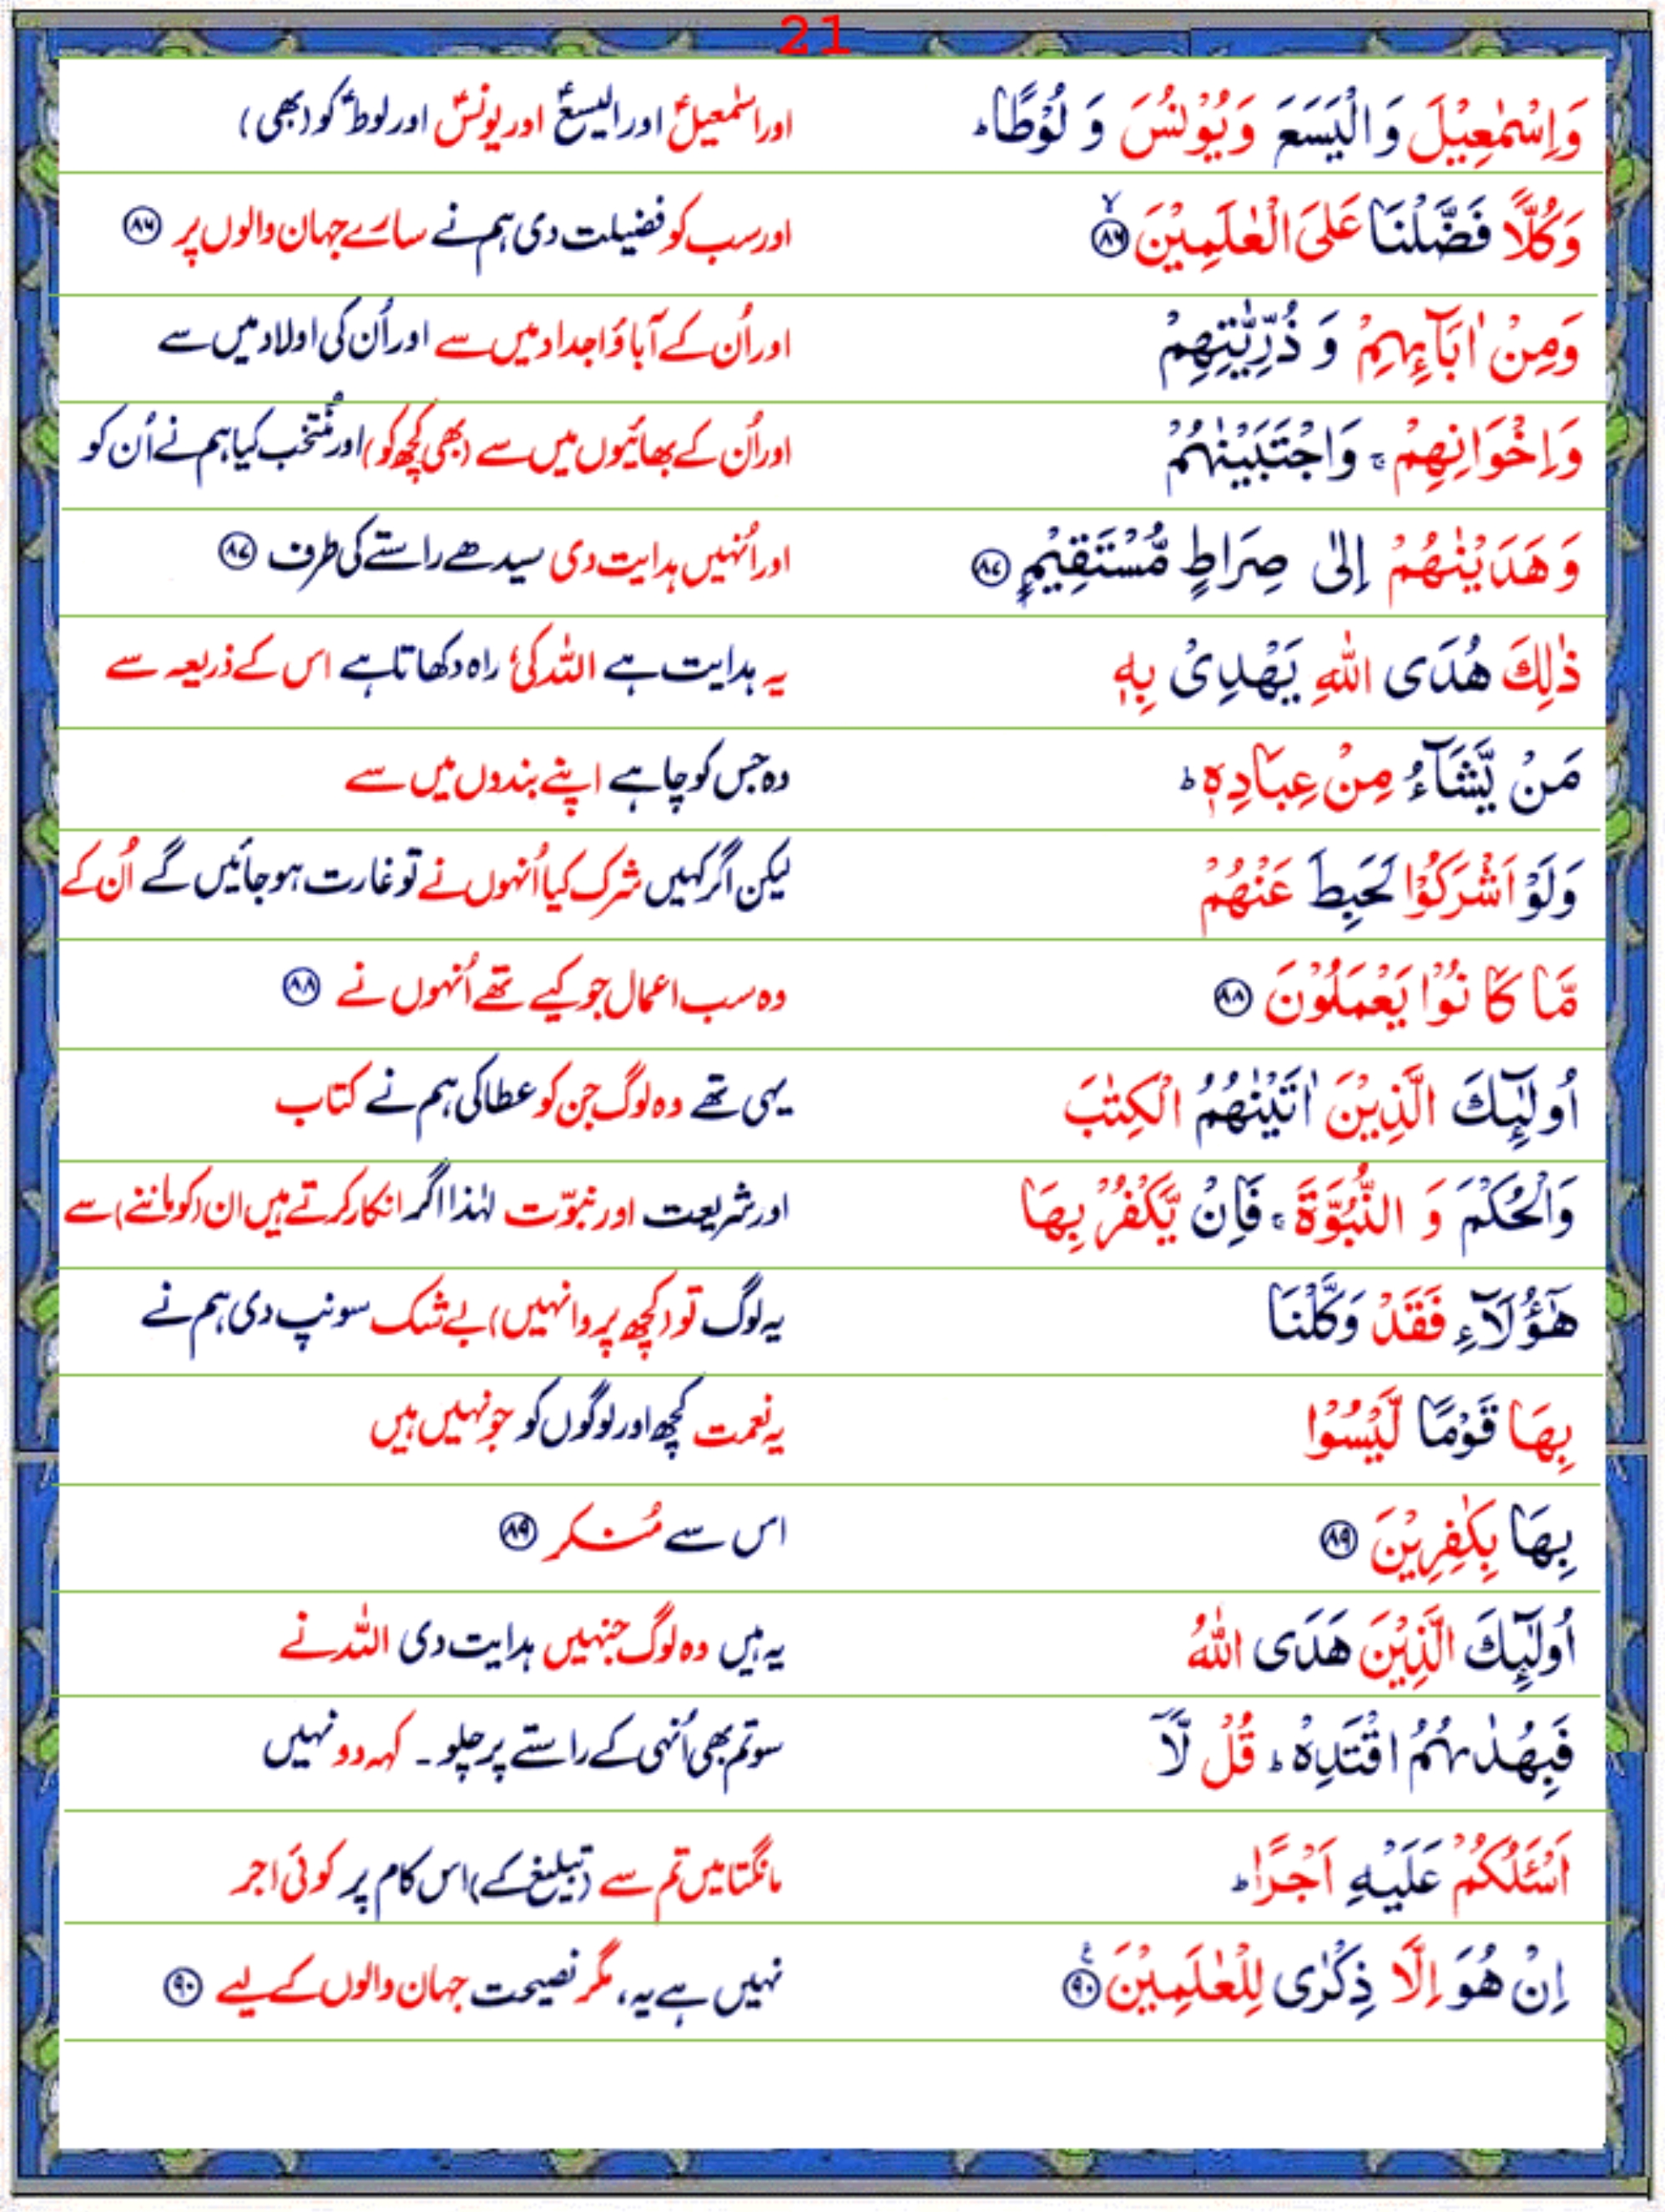 21
وَاِسْمٰعِيْلَ وَالْيَسَعَ وَيُوْنُسَ وَ لُوْطًا ؕ اور اسمٰعیلؑ اور الیسعؑ اور یونسؑ اور لوطؑ کو (بھی)
وَكُلًّا فَضَّلْنَا عَلَى الْعٰلَمِيْنَ ۙ﴿۸۶﴾ اور سب کو فضیلت دی ہم نے سارے جہان والوں پر ﴿۸۶﴾
وَمِنْ اٰبَآئِهِمْ وَ ذُرِّيّٰتِهِمْ اور اُن کے آباؤ اجداد میں سے اور اُن کی اولاد میں سے
وَاِخْوَانِهِمْ ۚ وَاجْتَبَيْنٰهُمْ اور اُن کے بھائیوں میں سے (بھی کچھ کو) اور مُنتخب کیا ہم نے اُن کو
وَهَدَيْنٰهُمْ اِلٰى صِرَاطٍ مُّسْتَقِيْمٍ ﴿۸۷﴾ اور اُنہیں ہدایت دی سیدھے راستے کی طرف ﴿۸۷﴾
ذٰلِكَ هُدَى اللّٰهِ يَهْدِىْ بِهٖ یہ ہدایت ہے اللہ کی، راہ دکھاتا ہے اس کے ذریعہ سے
مَنْ يَّشَآءُ مِنْ عِبَادِهٖ ؕ وہ جس کو چاہے اپنے بندوں میں سے
وَلَوْ اَشْرَكُوْا لَحَبِطَ عَنْهُمْ لیکن اگر کہیں شرک کیا اُنہوں نے تو غارت ہو جائیں گے اُن کے
مَّا كَانُوْا يَعْمَلُوْنَ ﴿۸۸﴾ وہ سب اعمال جو کیے تھے اُنہوں نے ﴿۸۸﴾
اُولٰٓئِكَ الَّذِيْنَ اٰتَيْنٰهُمُ الْكِتٰبَ یہی تھے وہ لوگ جن کو عطا کی ہم نے کتاب
وَالْحُكْمَ وَ النُّبُوَّةَ ۚ فَاِنْ يَّكْفُرْ بِهَا اور شریعت اور نبوّت لہٰذا اگر انکار کرتے ہیں ان (کو ماننے) سے
هٰٓؤُلَآءِ فَقَدْ وَكَّلْنَا یہ لوگ تو (کچھ پروا نہیں) بے شک سونپ دی ہم نے
بِهَا قَوْمًا لَّيْسُوْا یہ نعمت کچھ اور لوگوں کو جو نہیں ہیں
بِهَا بِكٰفِرِيْنَ ﴿۸۹﴾ اس سے مُنکر ﴿۸۹﴾
اُولٰٓئِكَ الَّذِيْنَ هَدَى اللّٰهُ یہ ہیں وہ لوگ جنہیں ہدایت دی اللہ نے
فَبِهُدٰىهُمُ اقْتَدِهْ ؕ قُلْ لَّآ سو تم بھی اُنہی کے راستے پر چلو ۔ کہہ دو نہیں
اَسْئَلُكُمْ عَلَيْهِ اَجْرًا ؕ مانگتا میں تم سے (تبلیغ کے) اس کام پر کوئی اجر
اِنْ هُوَ اِلَّا ذِكْرٰى لِلْعٰلَمِيْنَ ﴿۹۰﴾ۧ نہیں ہے یہ، مگر نصیحت جہان والوں کے لیے ﴿۹۰﴾